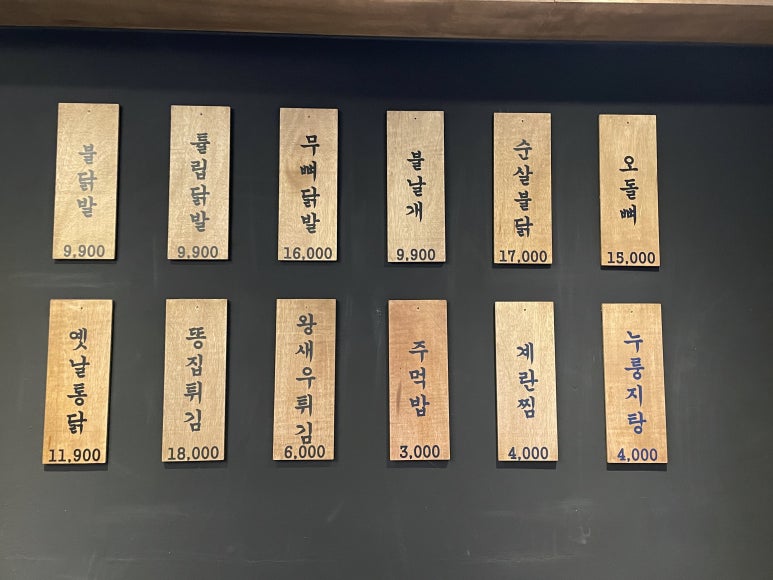 불닭발
9,900
튤립닭발
9,900
무뼈닭발
16,000
불날개
9,900
순살불닭
17,000
오돌뼈
15,000
옛날통닭
11,900
똥집튀김
18,000
왕새우튀김
6,000
주먹밥
3,000
계란찜
4,000
누룽지탕
4,000